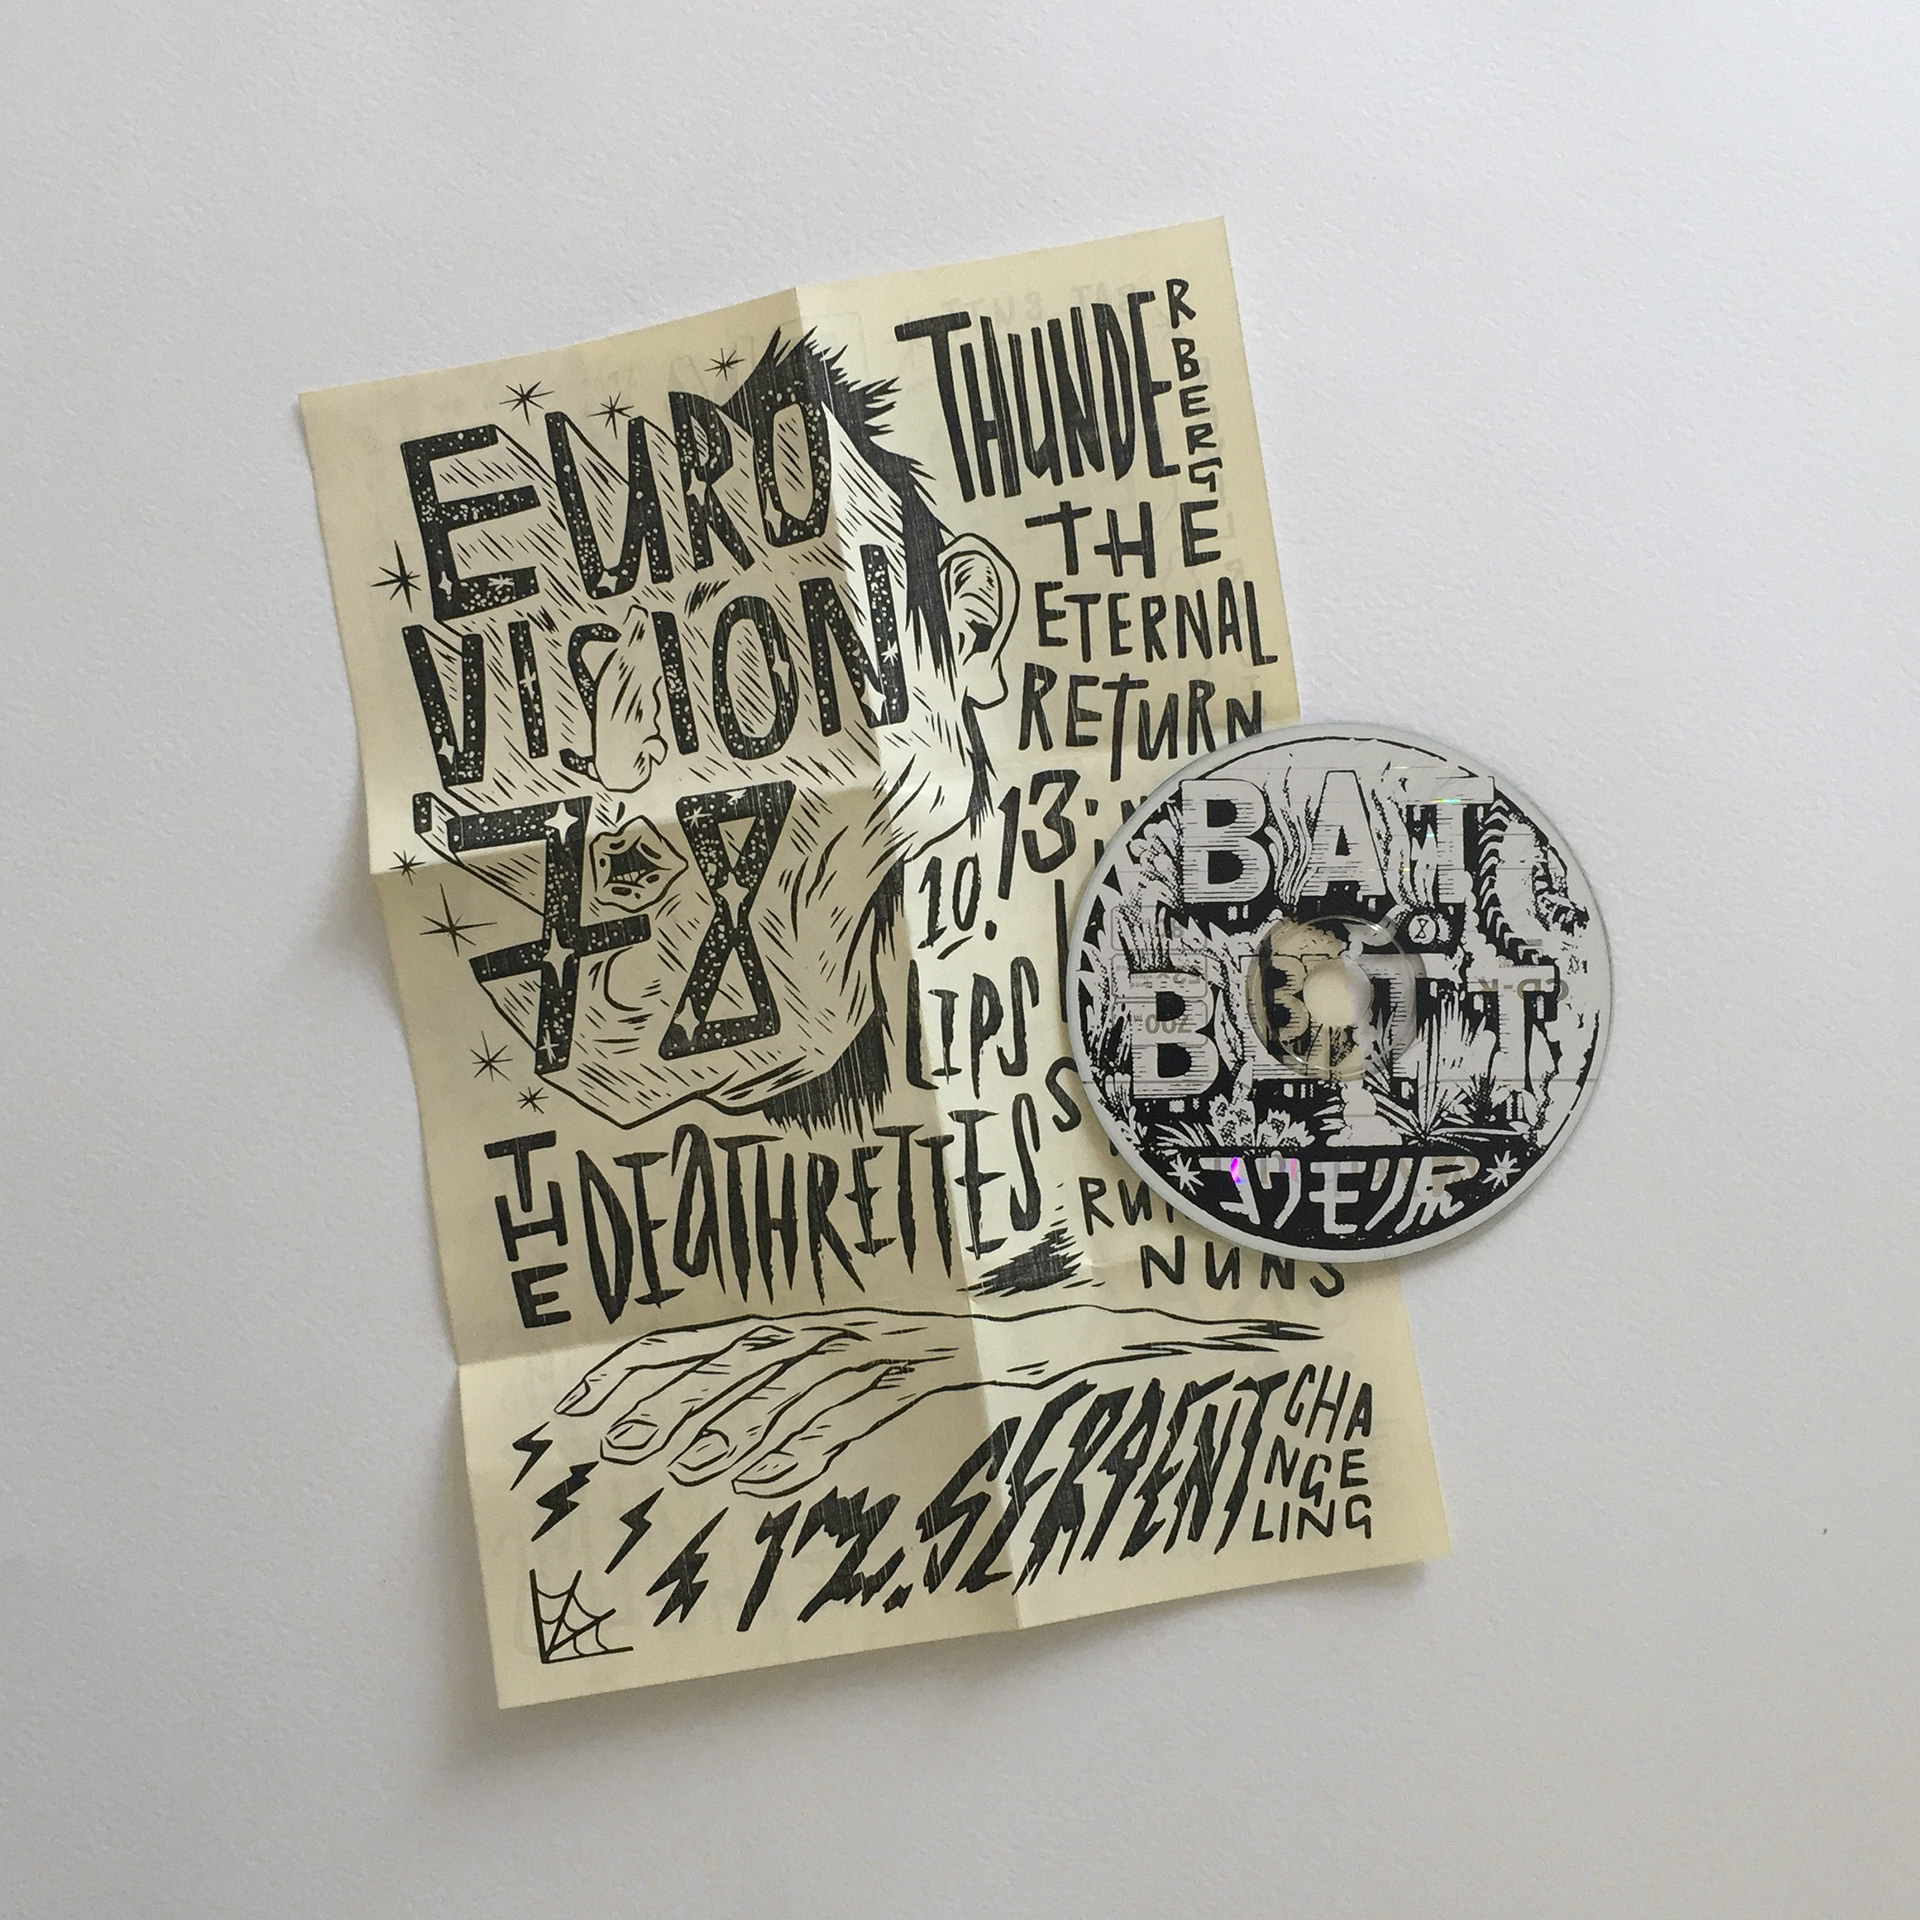 EURO
VISION
78
THUNDERBERG
THE
ETERNAL
RETURN
13.
10.
LIPS
THE DEATHRETTES
NUNS
12. SERPENT
CHA
NGE
LING
BAT
BUTT
CD-R
700